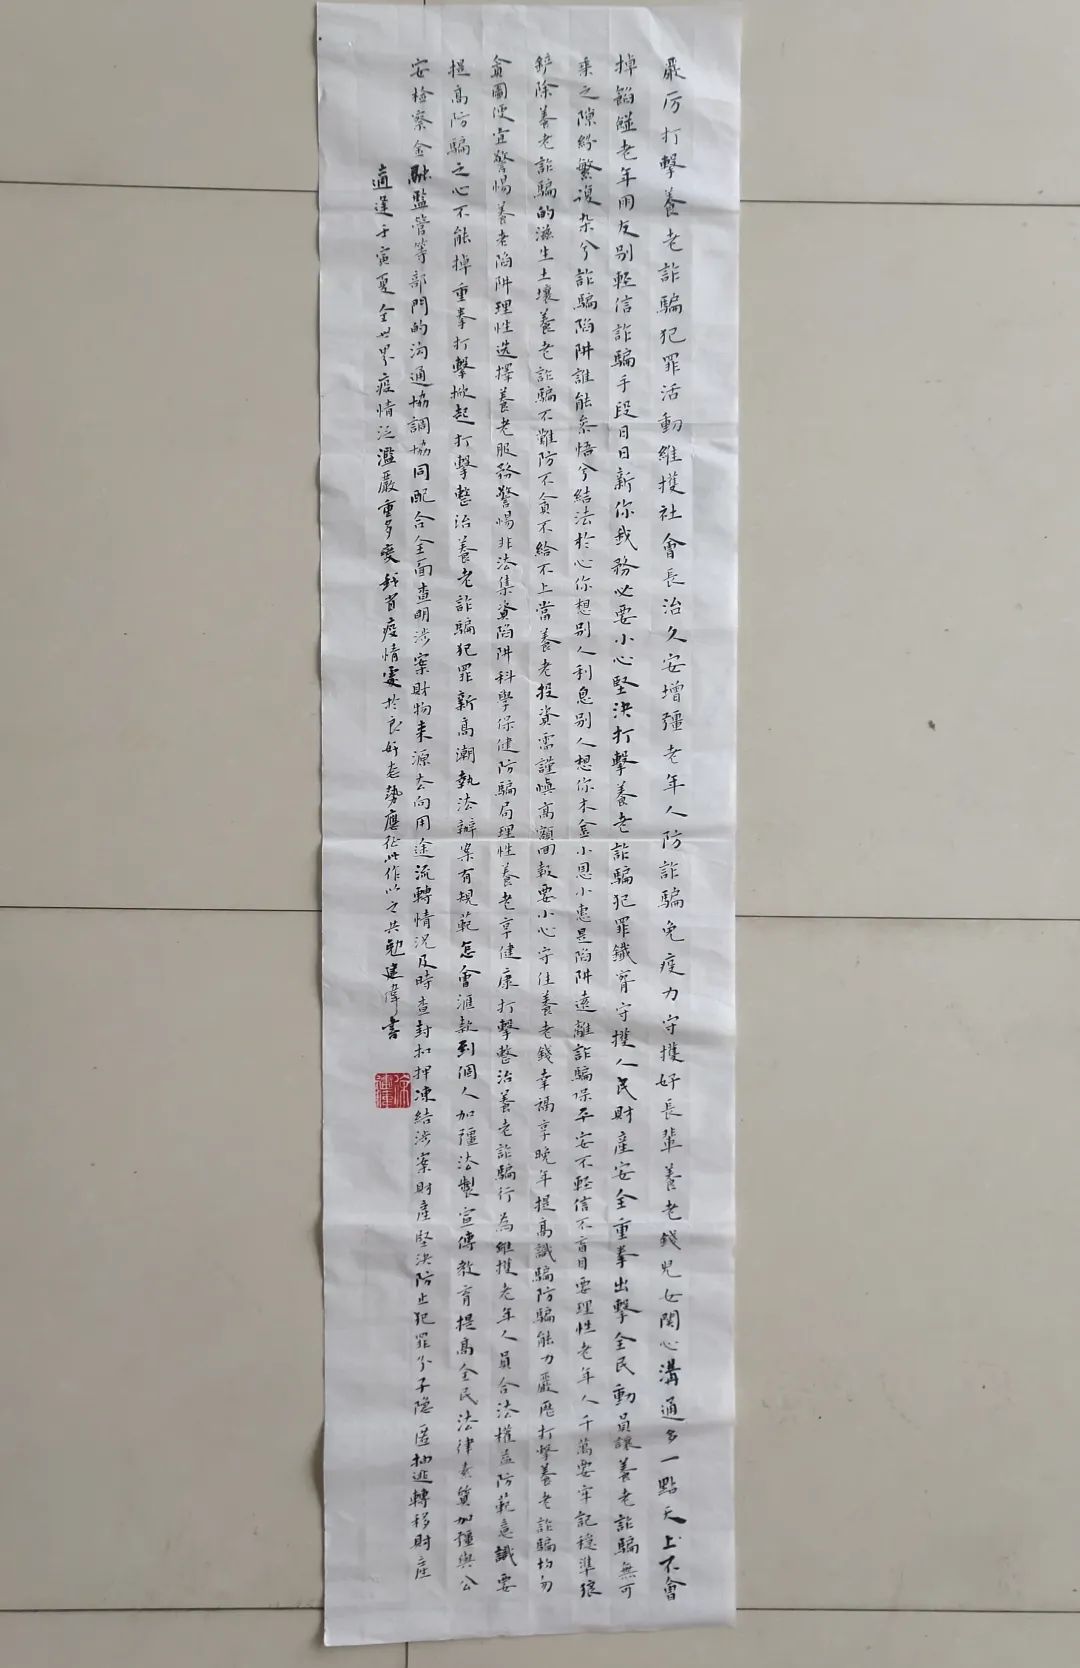 嚴厉打擊養老詐騙犯罪活動維擭社會長治久安增彊老年人防詐騙免疫力守擭好長輩養老錢兒女関心溝通多一點天上不會
掉餡餅老年朋友别輕信詐騙手段日日新你我務必要小心堅決打擊養老詐騙犯罪鐵肩守擭人民財產安全重拳出擊全民動員讓養老詐騙無可
乘之隙紛繁復杂兮詐騙陷阱誰能參悟兮結法於心你想别人利息别人想你本金小恩小惠是陷阱遠離詐騙保平安不輕信不盲目要理性老年人千萬要牢記穩準狼
鏟除養老詐騙的滋生土壤養老詐騙不難防不貪不給不上當養老投資需謹慎高額回報要小心守住養老錢幸福享晚年提高識騙防騙能力嚴厉打擊養老詐騙均勿
貪圖便宜警惕養老陷阱理性选擇養老服務警惕非法集資陷阱科學保健防騙局理性養老享健康打擊整治養老詐騙行為維擭老年人員合法權益防範意識要
提高防騙之心不能掉重拳打擊掀起打擊整治養老詐騙犯罪新高潮執法辦案有規範怎會滙款到個人加彊法製宣傳教育提高全民法律素質加彊與公
安检察金融監管等部門的溝通協調協同配合全面查明涉案財物来源去向用途流轉情况及時查封扣押凍結涉案財產堅決防止犯罪分子隐匿抽逃轉移財產
適逢于寅夏全世界疫情泛濫嚴重多變我省疫情處於良好态勢應征此作以之共勉建偉書